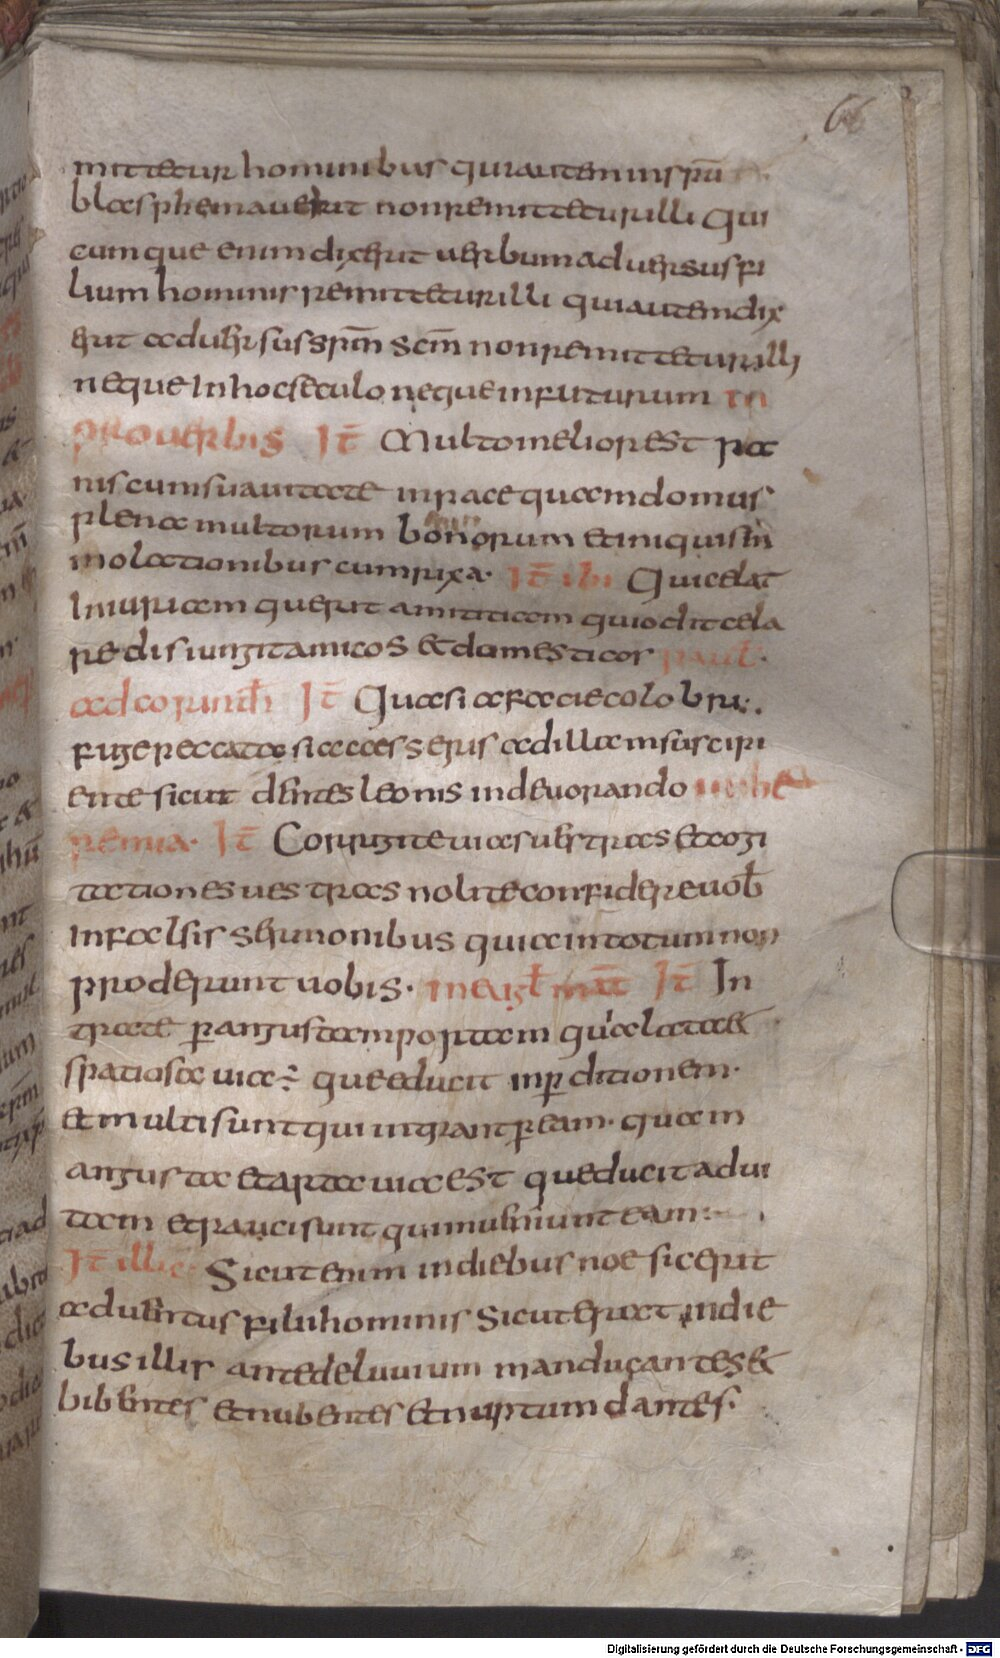 66
mittetur hominibus qui autem in spū
blasphemauerit non remittetur illi Qui
cumque enim dixerit uerbum aduersus fi
lium hominis remittetur illi qui autem dix
erit aduersus spm̄ scm̄ non remittetur illi
neque In hoc seculo neque in futurum In
prouerbiis It̄ Multo melior est pa
nis cum suauitate in pace quam domus
plena multorum bonorum et iniquis im
molationibus cum rixa. It̄ ibi Qui celat
Iniuriam querit amititiam qui odit cela
re disiungit amicos et domesticos paul̄.
ad corinth̄ It̄ Quasi a facie colobri.
fuge peccata si accesseris ad illa suscipi
ente sicut dentes leonis in deuorando In hie
remia. It̄ Corrigite uias uestras et cogi
tationes uestras nolite confidere uob̄
In falsis sermonibus quia in totum non
proderunt uobis. In eugl̄ mat̄ It̄ In
trate per angustam portam quia lata &
spatiosa uia que ducit in perditionem.
et multi sunt qui intrant per eam. quam
angusta et arta uia est que ducit ad ui
tam et pauci sunt qui inueniunt eam
It̄ illic Sicut enim in diebus noe sic erit
aduentus filii hominis Sicut erat in die
bus illis ante deluuium manducantes &
bibentes et nubentes et nuptum dantes.
Digitalisierung gefördert durch die Deutsche Forschungsgemeinschaft - DFG